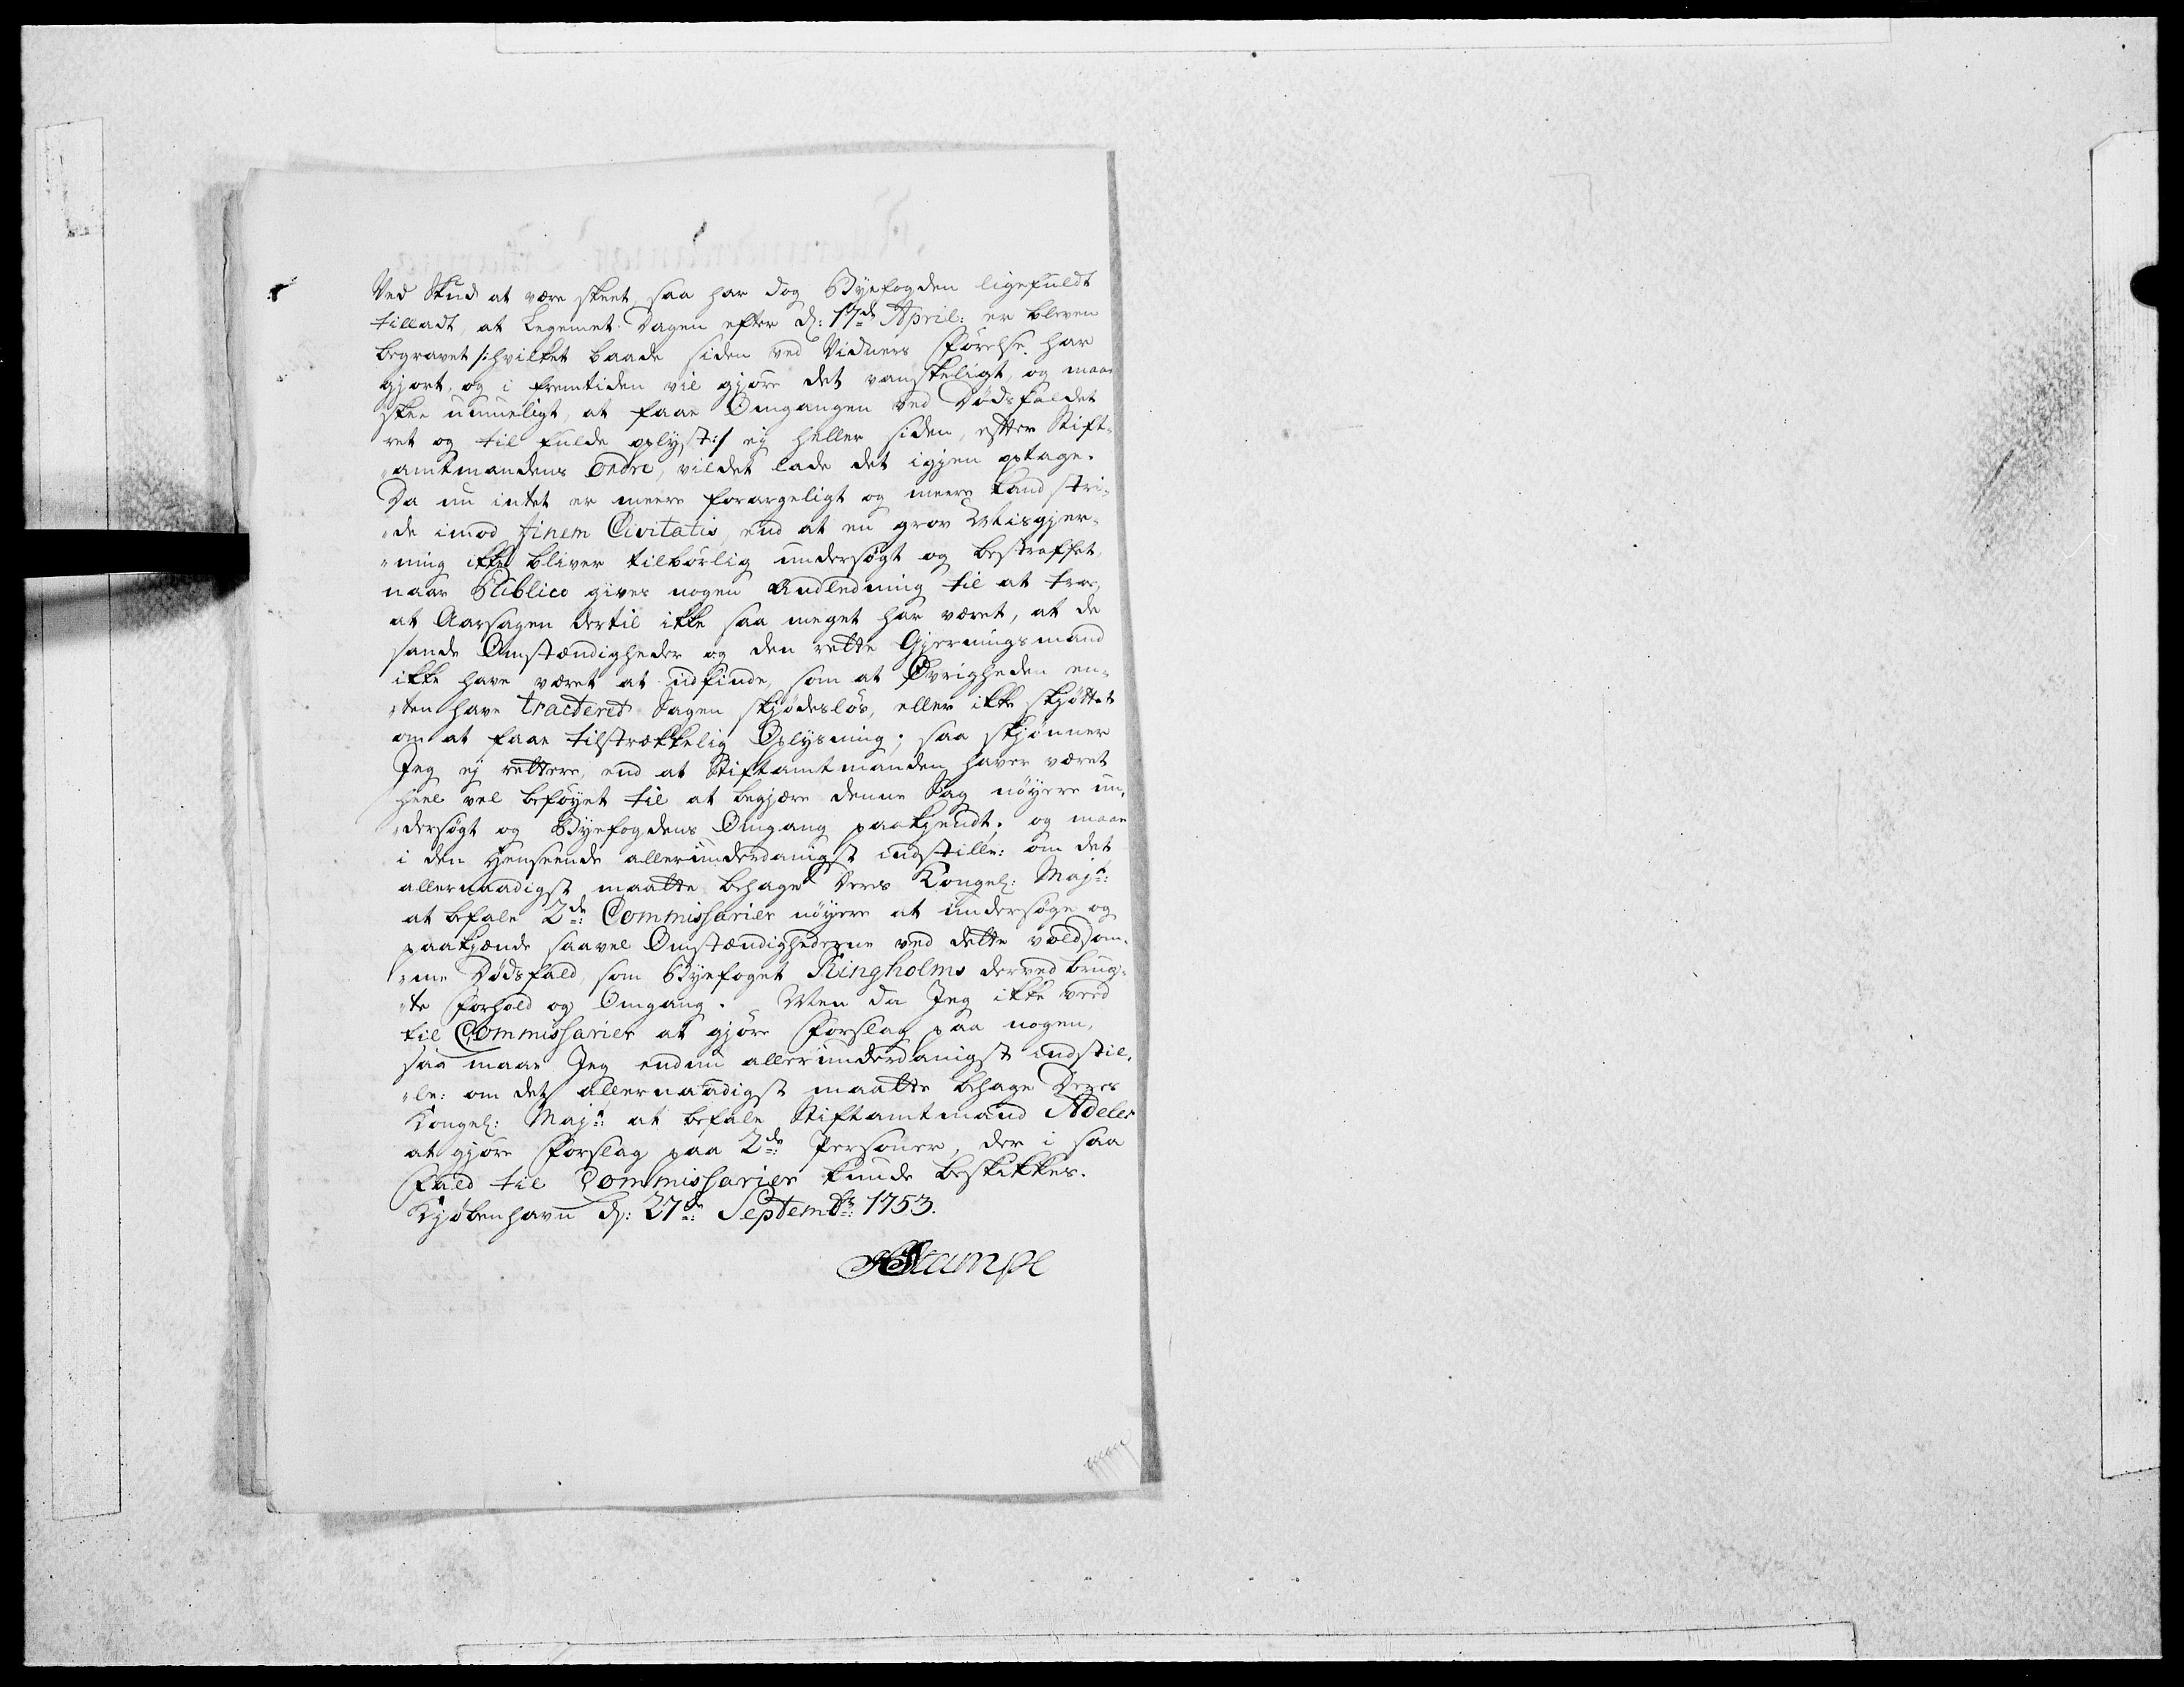 Ved Skud at være skeet, saa har dog Byefogden ligefuldt
tilladt, at Legemet Dagen efter d: 17de April: er bleven
begravet /:hvilket baade siden ved Vidners Førelse har
gjort, og i fremtiden vil gjøre det vanskeligt, og maa
skee umueligt, at faae Omgangen ved Dødsfaldet
ret og til fulde oplyst:/ ej heller siden, efter Stift-
"amtmandens Ordre, vildet lade det igjen optage.
Da nu intet er meere forargeligt og meere kand stri-
"de imod finem Civitatis, end at en grov Misgjer-
"ning ikke bliver tilbørlig undersøgt og bestraffet,
naar Publico gives nogen Andledning til at troe,
at Aarsagen dertil ikke saa meget har været, at de
sande Omstændigheder og den rette Gjerningsmand
ikke have været at udfinde, som at Øvrigheden en-
"ten have tracteret Sagen skjødesløs, eller ikke skjøttet
om at faae tilstrækkelig Oplysning; saa skjønner
Jeg ej rettere, end at Stiftamtmanden haver været
heel vel beføyet til at begjære denne Sag nøyere un-
"dersøgt og Byefogdens Omgang paakjendt; og maae
i den Henseende allerunderdanigst indstille: om det
allernaadigst maatte behage Deres Kongel: Majt:
at befale 2de Commissarier nøyere at undersøge og
paakjende saavel Omstændighederne ved dette voldsom-
"me Dødsfald, som Byefoget Ringholms derved brug-
"te Forhold og Omgang. Men da Jeg ikke veed
til Commissarier at gjøre Forslag paa nogen,
saa maae Jeg endnu allerunderdanigst indstil-
"le: om det allernaadigst maatte behage Deres
Kongel: Majt: at befale Stiftamtmand Adeler
at gjøre Forslag paa 2de Personer, der i saa
Fald til Commissarier kunde beskikkes.
Kjøbenhavn d: 27de Septembr: 1753.
HStampe